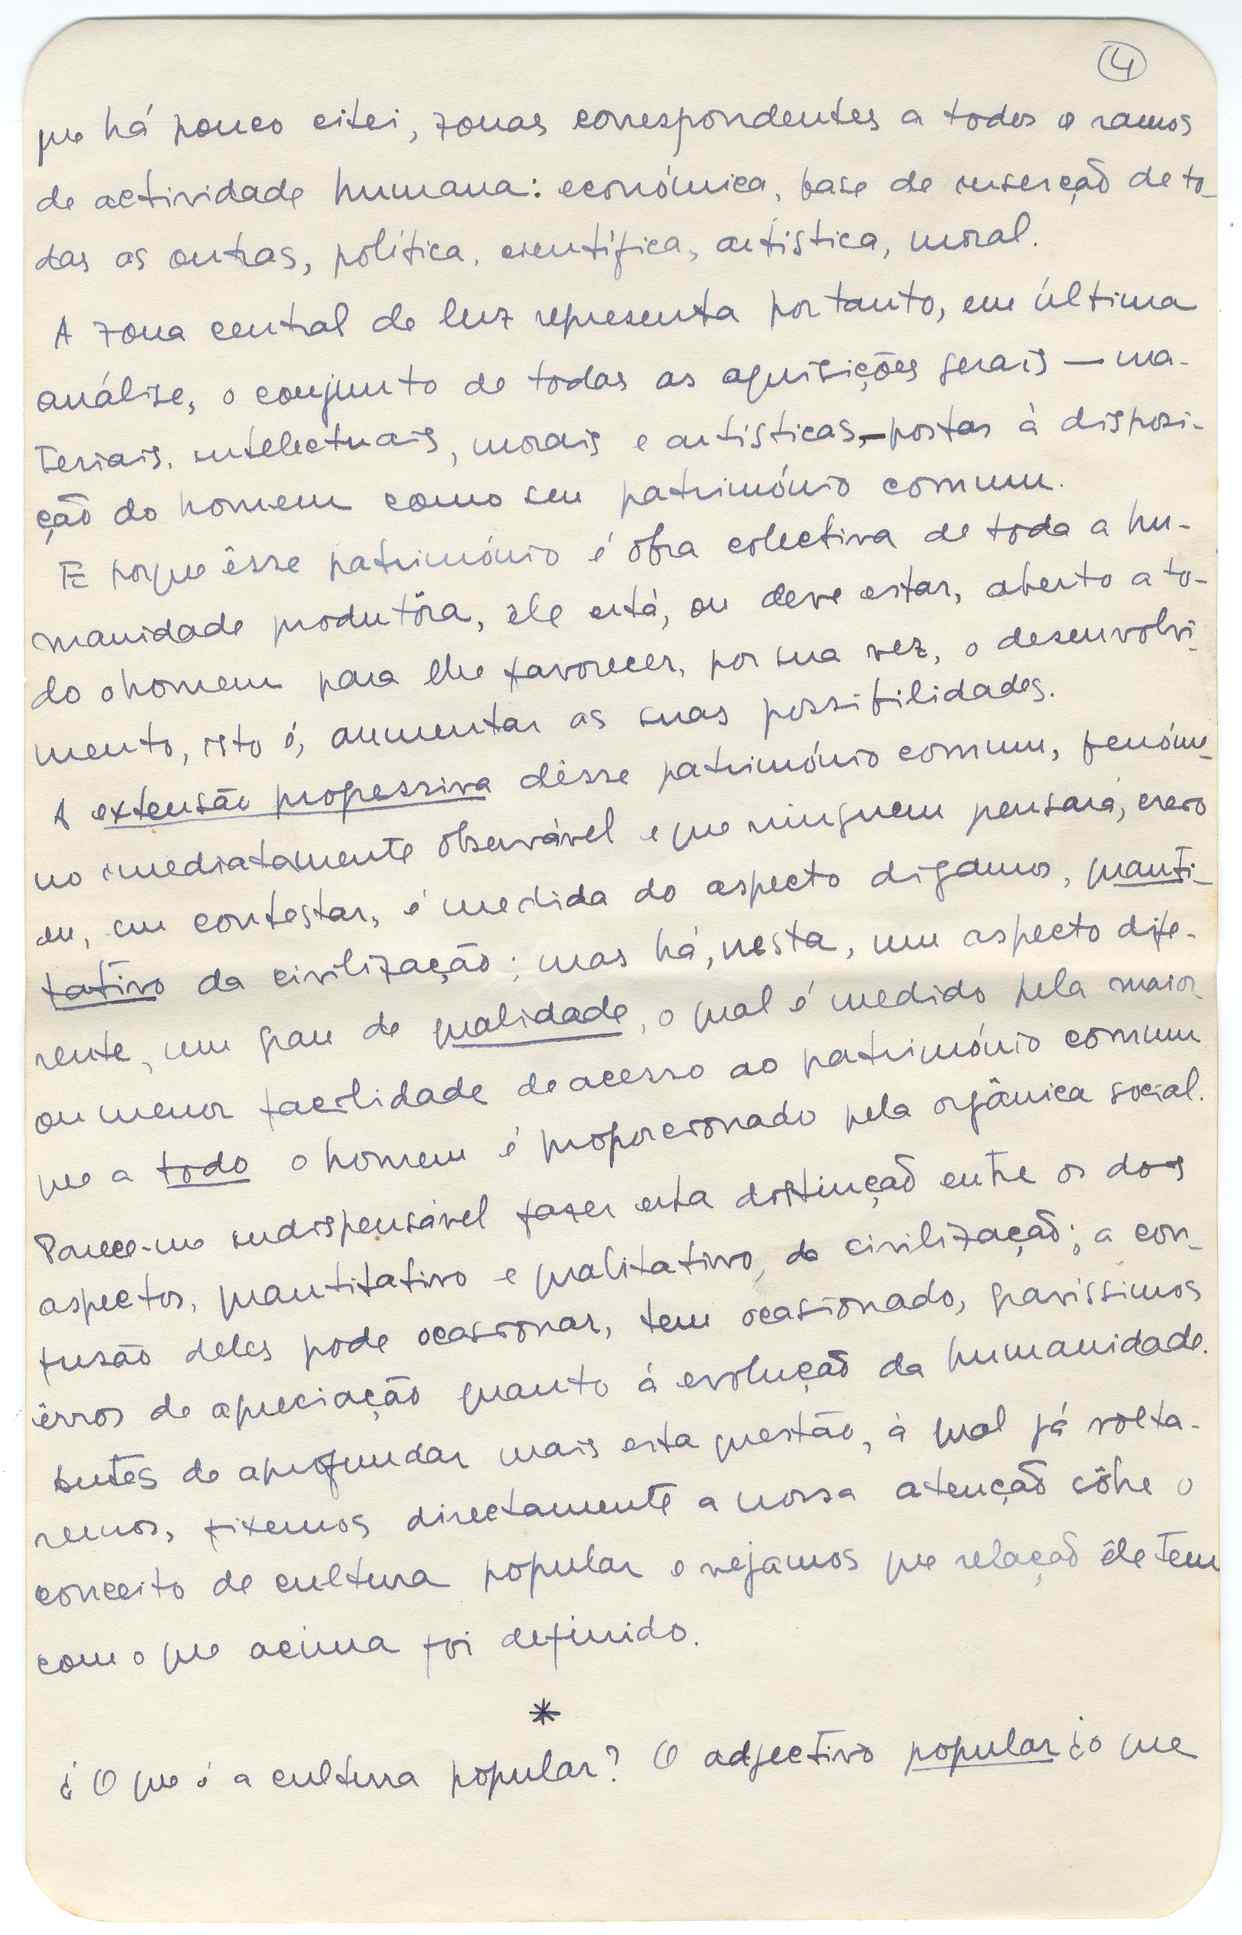 4
que há pouco citei, zonas correspondentes a todos os ramos
de actividade humana: económica, base de inserção de to-
das as outras, política, científica, artística, moral.
A zona central de luz representa portanto, em última
análise, o conjunto de todas as aquisições gerais — ma-
teriais, intelectuais, morais e artísticas, — postas à disposi-
ção do homem como seu património comum.
E porque êsse património é obra colectiva de toda a hu-
manidade produtôra, êle está, ou deve estar, aberto a to-
do o homem para lhe favorecer, por sua vez, o desenvolvi-
mento, isto é, aumentar as suas possibilidades.
A extensão progressiva dêsse património comum, fenóme-
no imediatamente observável e que ninguem pensará, creio
eu, em contestar, é medida do aspecto digamos, quanti-
tativo da civilização; mas há, nesta, um aspecto dife-
rente, um grau de qualidade, o qual é medido pela maior
ou menor facilidade de acesso ao património comum
que a todo o homem é proporcionado pela orgânica social.
Parece-me indispensável fazer esta distinção entre os dois
aspectos, quantitativo e qualitativo, da civilização; a con-
fusão deles pode ocasionar, tem ocasionado, gravíssimos
êrros de apreciação quanto à evolução da humanidade.
Antes de aprofundar mais esta questão, à qual já volta-
remos, fixemos directamente a nossa atenção sôbre o
conceito de cultura popular e vejamos que relação êle tem
com o que acima foi definido.
*
¿O que é a cultura popular? O adjectivo popular ¿o que